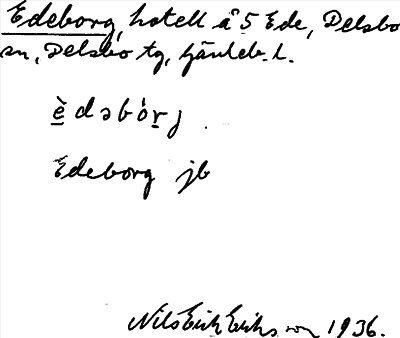 Edeborg, hotell å 5 Ede, Delsbo
sn, Delsbo tg, Gävleb. l.
è̱ d ə b ó ṟ j .
Edeborg jb
Nils Erik Eriksson 1936.